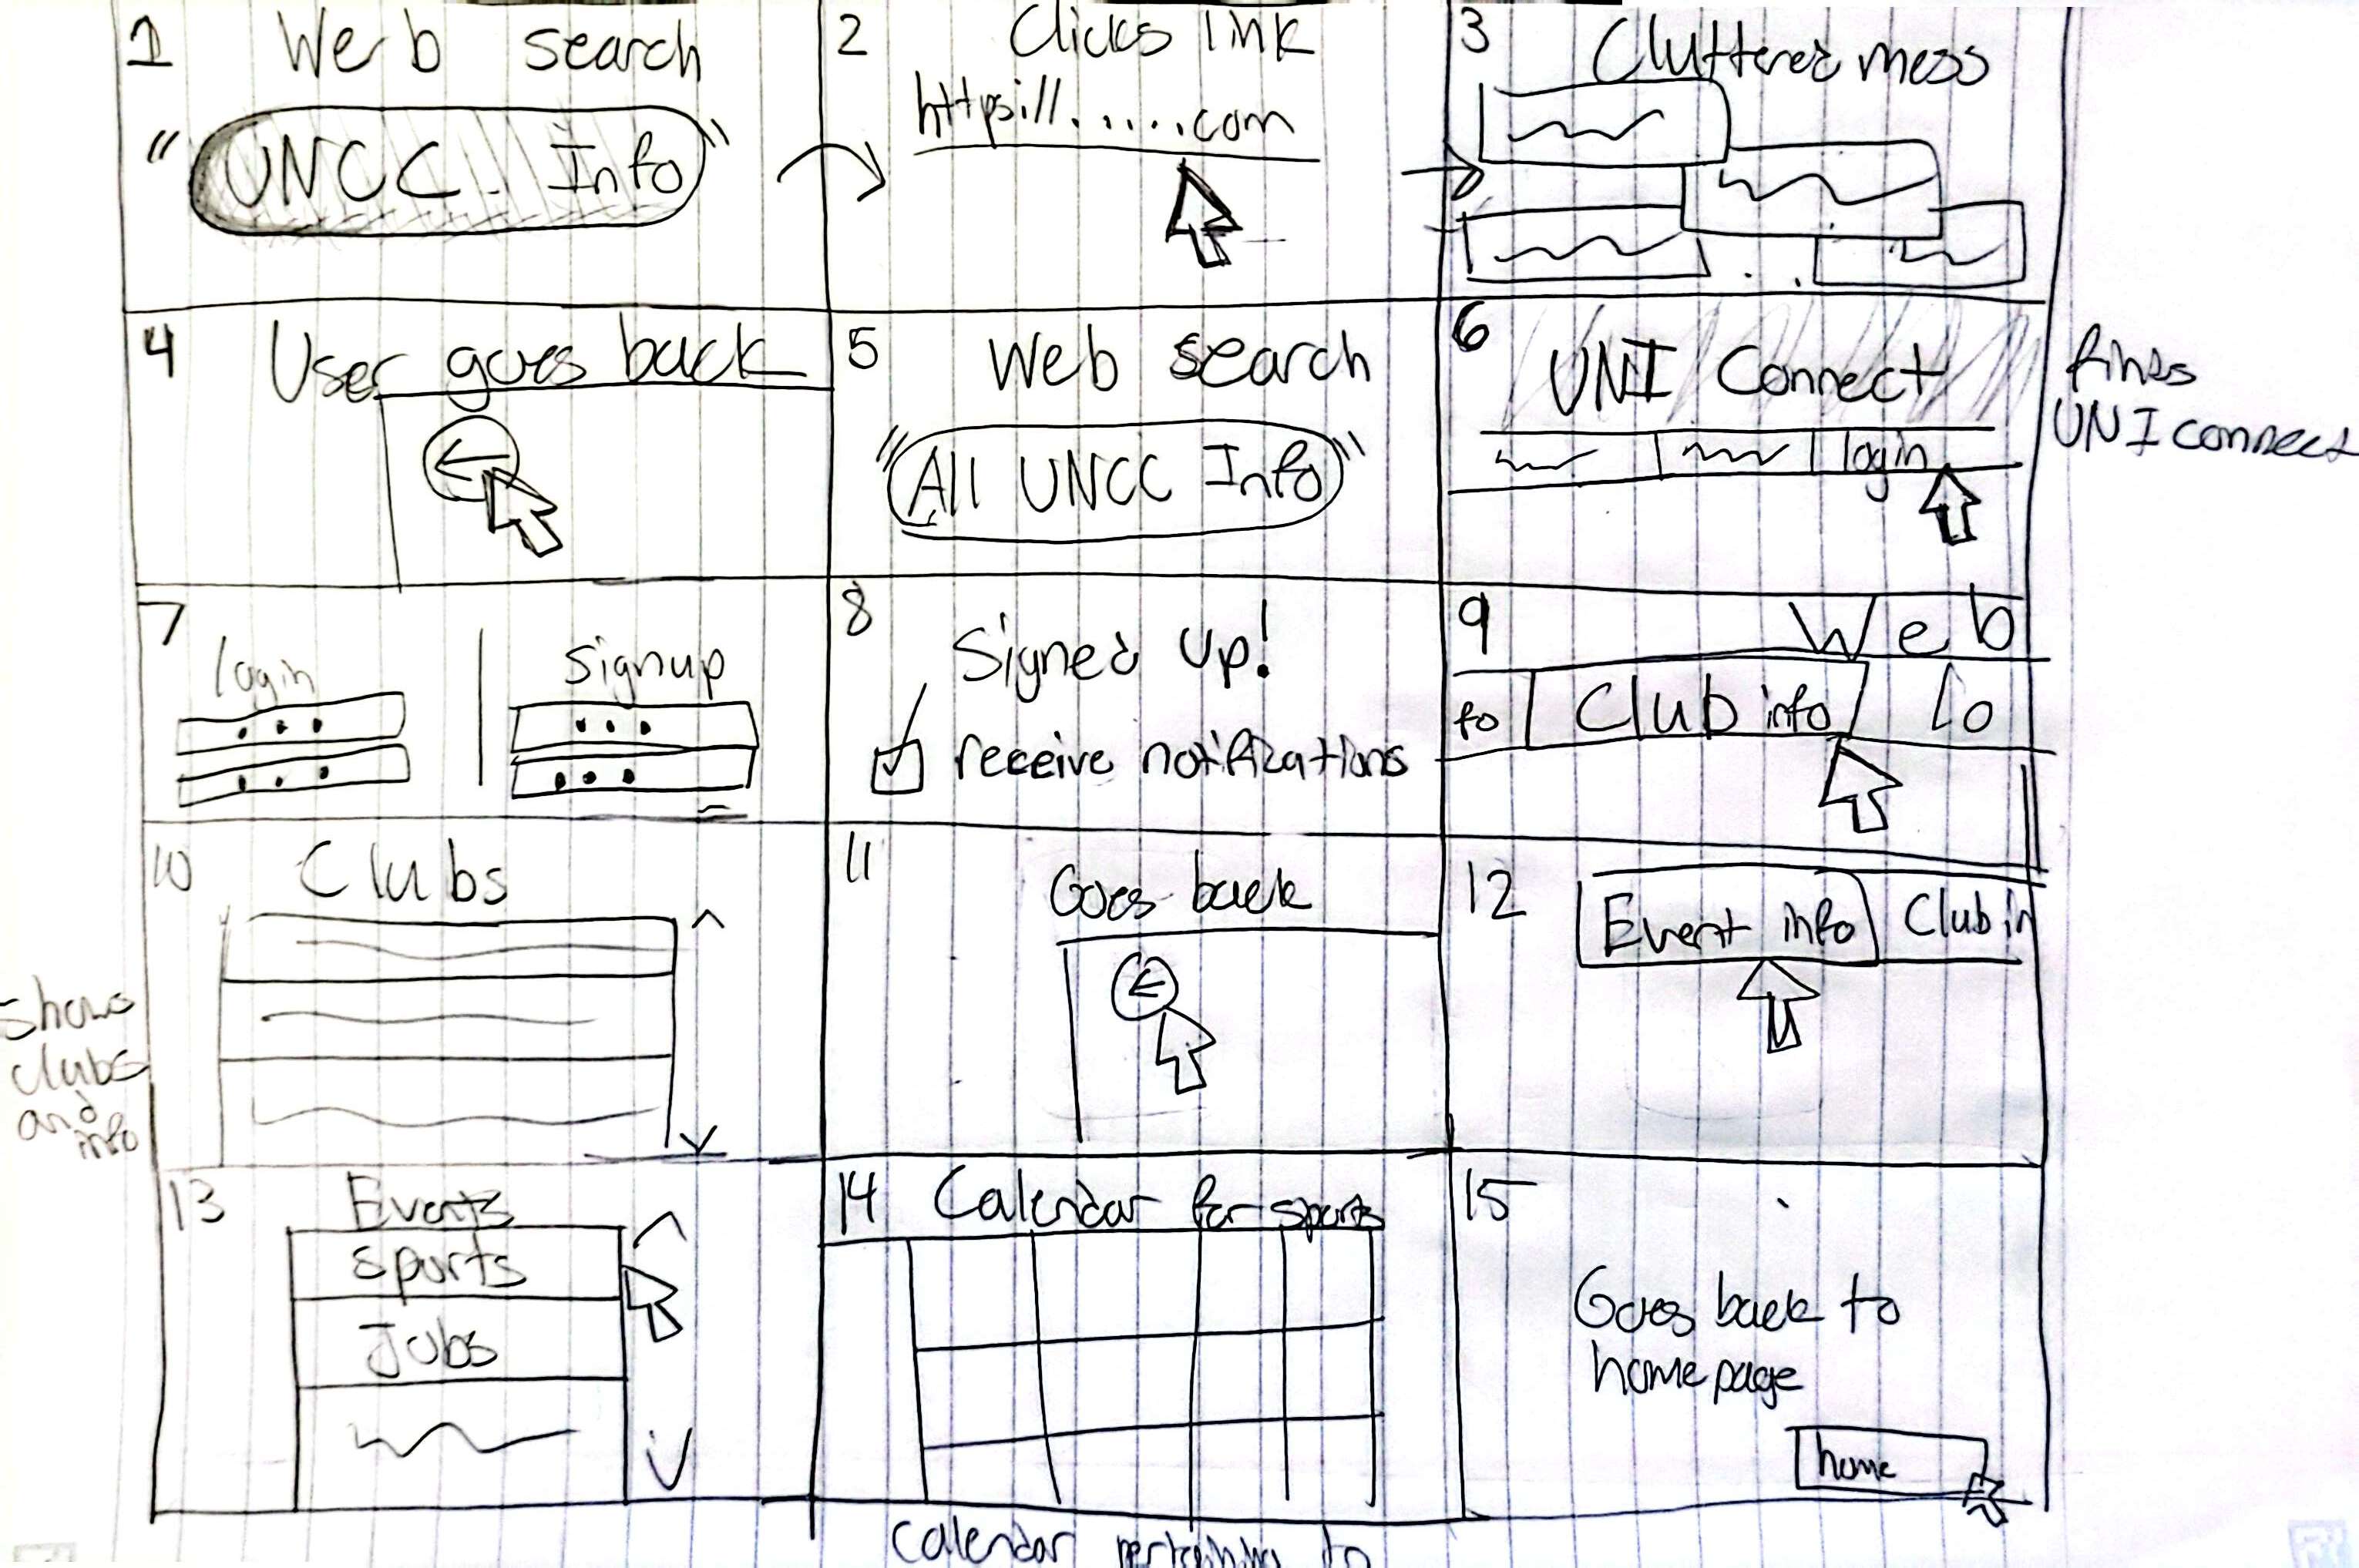 1 Web search
"UNCC Info"
2 Clicks link
https://......com
3 Cluttered mess
4 User goes back
5 Web search
"All UNCC Info"
6 UNI Connect
login
finds
UNI connect
7
login
signup
8
Signed Up!
receive notifications
9 Web
fo Club info lo
10 Clubs
shows
clubs
and
info
11
Goes back
12
Event info Club in
13 Events
sports
Jobs
14 Calendar for sports
calendar pertaining to
15
Goes back to
home page
home